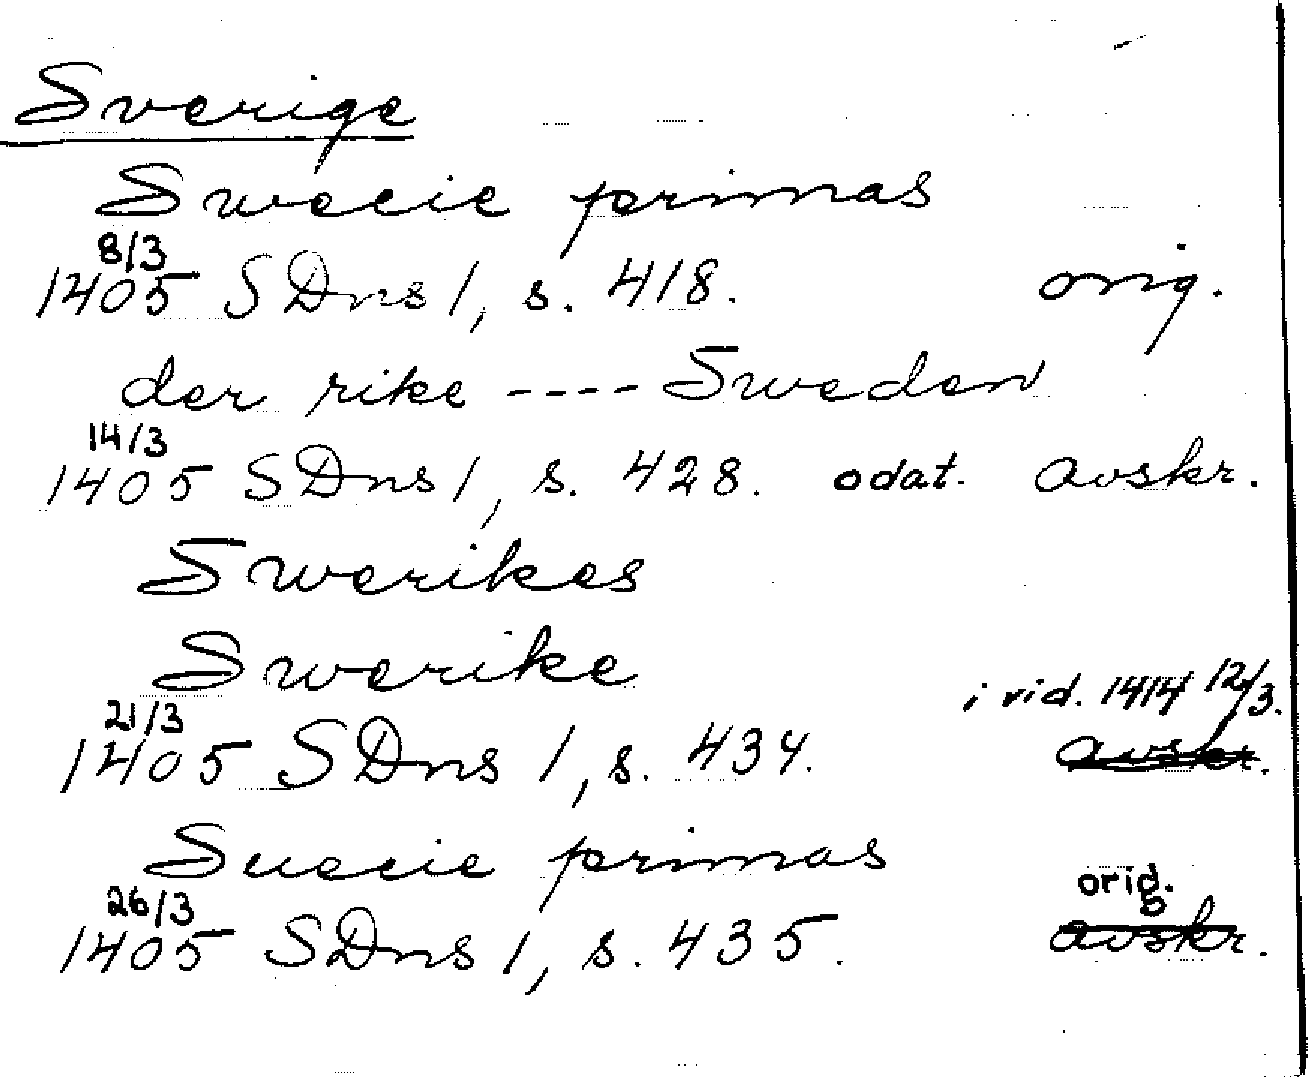 Sverige
Swecie primas
8/3
1405 SDns 1, s. 418. orig.
der rike ---- Sweden
14/3
1405 SDns 1, s. 428. odat. avskr.
Swerikes
Swerike
i vid. 1414 12/3.
21/3
1405 SDns 1, s. 434. avskr.
Suecie primas
26/3 orig.
1405 SDns 1, s. 435. avskr.